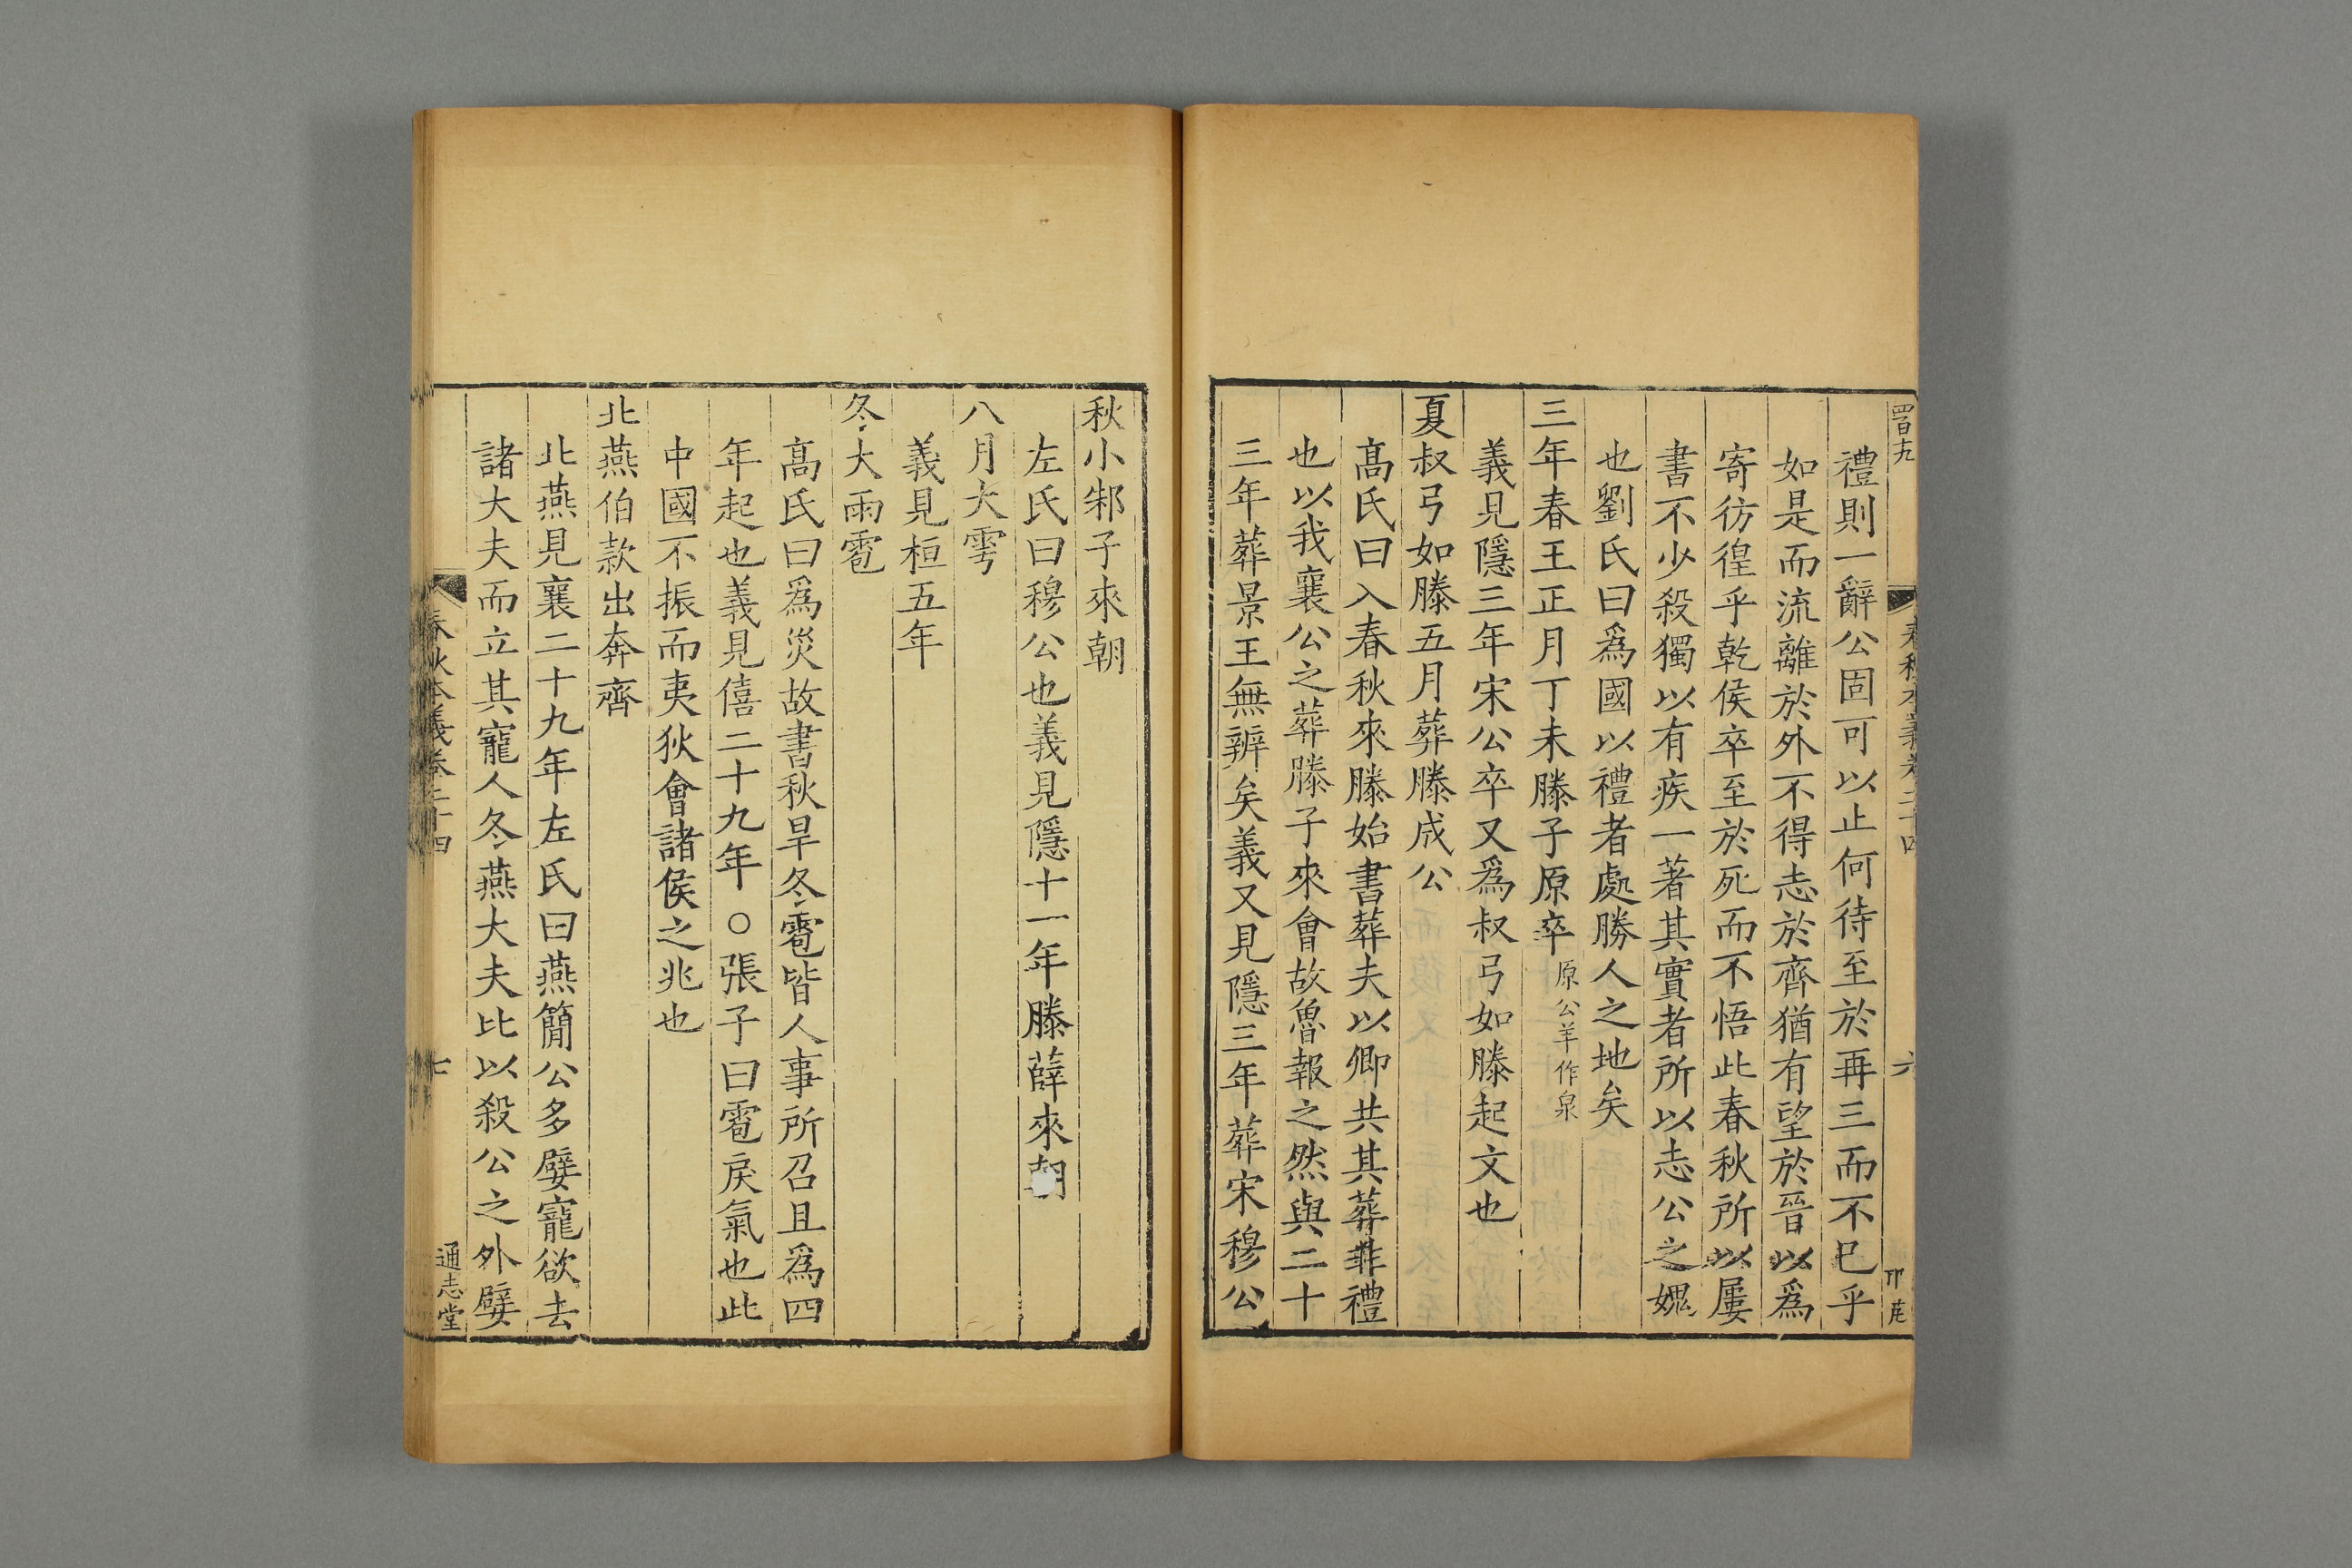 禮則一辭公固可以止何待至於再三而不巳乎
如是而流離於外不得志於齊猶有望於晉以爲
寄彷徨乎乾侯卒至於死而不悟此春秋所以屢
書不少殺獨以有疾一著其實者所以志公之媿
也劉氏曰爲國以禮者處勝人之地矣
三年春王正月丁未滕子原卒原公羊作泉
義見隱三年宋公卒又爲叔弓如滕起文也
夏叔弓如滕五月葬滕成公
髙氏曰入春秋來滕始書葬夫以卿共其葬非禮
也以我襄公之葬滕子來會故魯報之然與二十
三年葬景王無辨矣義又見隱三年葬宋穆公
秋小邾子來朝
左氏曰穆公也義見隱十一年滕薛來朝
八月大雩
義見桓五年
冬大雨雹
髙氏曰爲災故書秋旱冬雹皆人事所召且爲四
年起也義見僖二十九年○張子曰雹戾氣也此
中國不振而夷狄會諸侯之兆也
北燕伯款出奔齊
北燕見襄二十九年左氏曰燕簡公多嬖寵欲去
諸大夫而立其寵人冬燕大夫比以殺公之外嬖
春秋本義卷二十四
七
通志堂